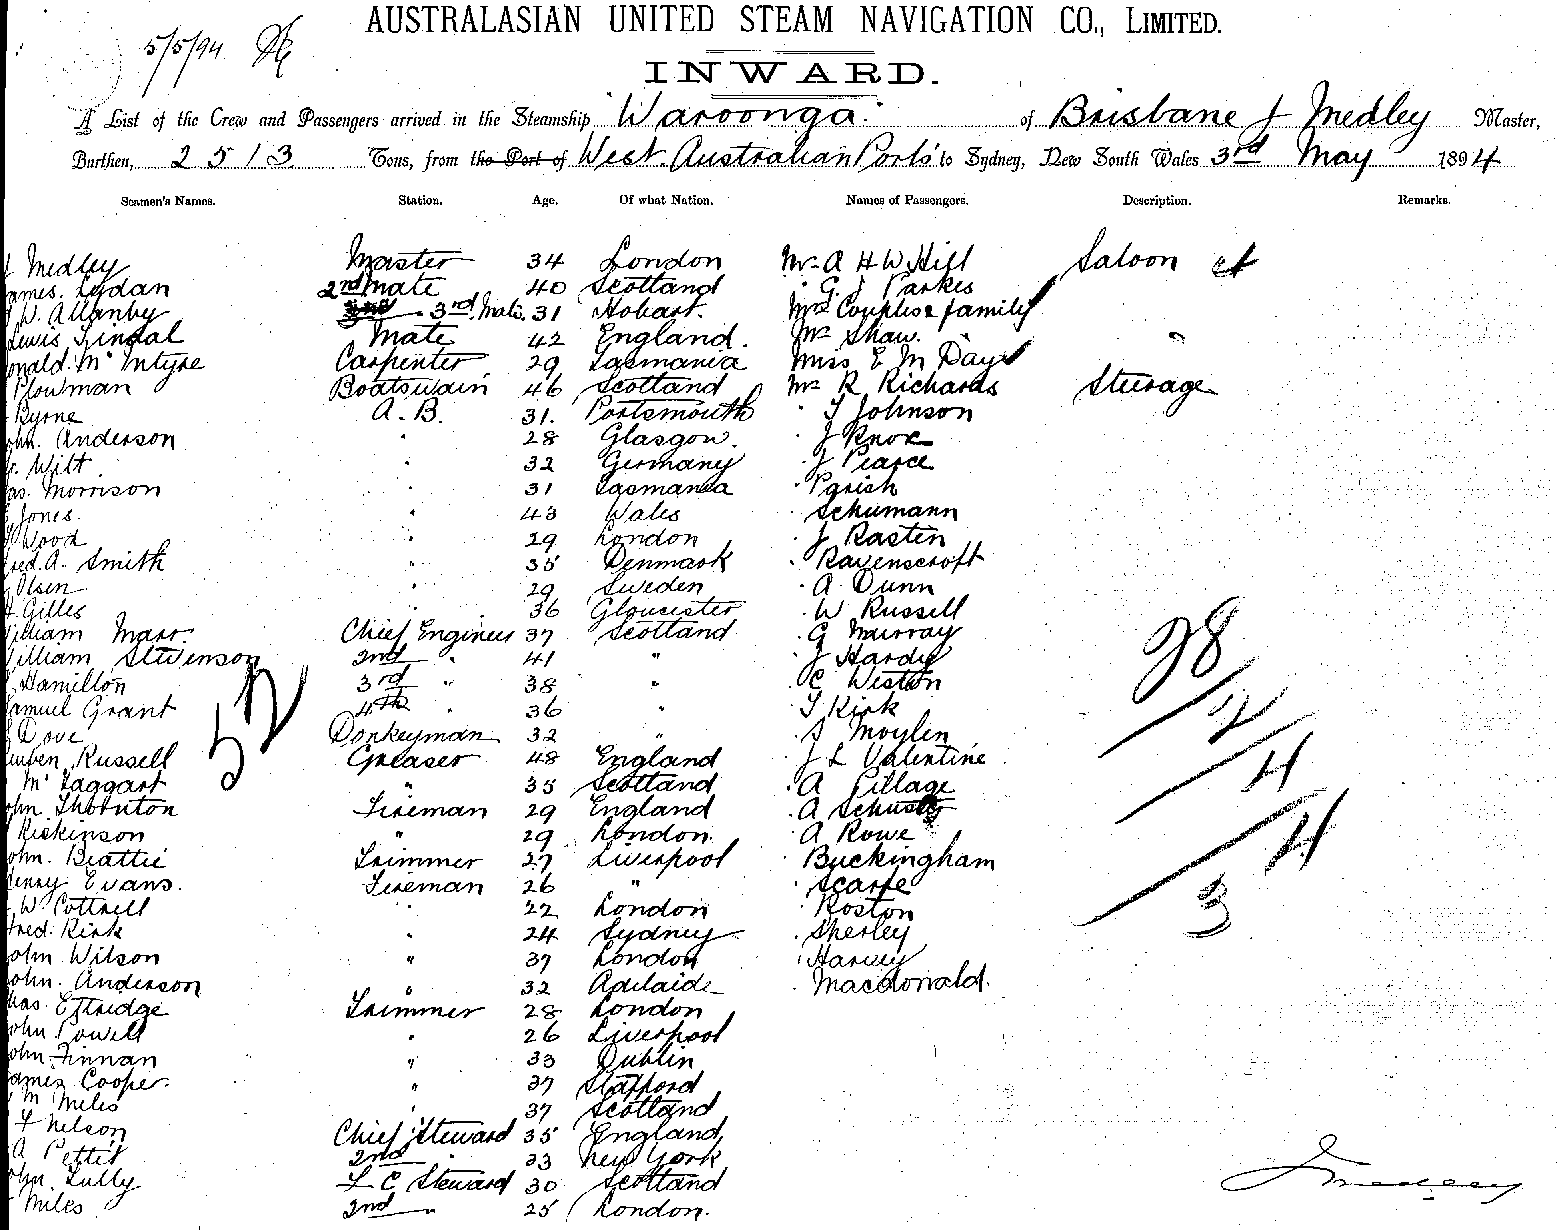 AUSTRALASIAN UNITED STEAM NAVIGATION CO., LIMITED.
5/5/94
INWARD.
A List of the Crew and Passengers arrived in the Steamship "Waroonga" of Brisbane J Medley Master,
Burthen, 2513 Tons, from the Port of West Australian Ports to Sydney, New South Wales 3rd May 1894
Seamen's Names. Station. Age. Of what Nation. Names of Passengers. Description. Remarks.
J Medley Master 34 London Mr A H W Hill Saloon
James Lydan 2nd Mate 40 Scotland " G J Parkes
W. Allanby 3rd Mate 31 Hobart. Mrs Couples & family
Lewis Tindal Mate 42 England. Mr Shaw.
Donald McIntyre Carpenter 29 Tasmania Miss E M Day
Plowman Boatswain 46 Scotland Mr R Richards Steerage
Byrne A.B. 31. Portsmouth " T Johnson
John Anderson " 28 Glasgow. " J Knox
Witt " 32 Germany " J Pearce
Jas. Morrison " 31 Tasmania " Parish
Jones. " 43 Wales " Schumann
Wood " 29 London " J Rasten
Fred. A. Smith " 35 Denmark " Ravenscroft
Olsen " 29 Sweden " A Dunn
Gilles " 36 Gloucester " W Russell
William Marr. Chief Engineer 37 Scotland " G Murray
William Stevenson 2nd " 41 " " J Hardy
Hamilton 3rd " 38 " " C Weston
Samuel Grant 4th 36 " " T Kirk
Dove Donkeyman 32 " " S Moylin
Reuben Russell Greaser 48 England " J L Valentine
McTaggart " 35 Scotland " A Pillage
John Thornton Fireman 29 England " A Schuster
Rickinson " 29 London " A Rowe
John. Beattie Trimmer 27 Liverpool " Buckingham
Henry Evans. Fireman 26 " " Scarfe
W Cottrell " 22 London " Roston
Fred. Kirk " 24 Sydney " Sherley
John Wilson " 37 London " Harvey
John. Anderson " 32 Adelaide " Macdonald.
Chas. Ettridge Trimmer 28 London
John Powell " 26 Liverpool
John Finnan " 33 Dublin
James Cooper " 37 Stafford
M Miles " 37 Scotland
F Nelson Chief Steward 35 England
A Pettit 2nd " 33 New York
John. Tully F C Steward 30 Scotland
Miles 2nd " 25 London.
52
28
12
4
4
3
J Medley